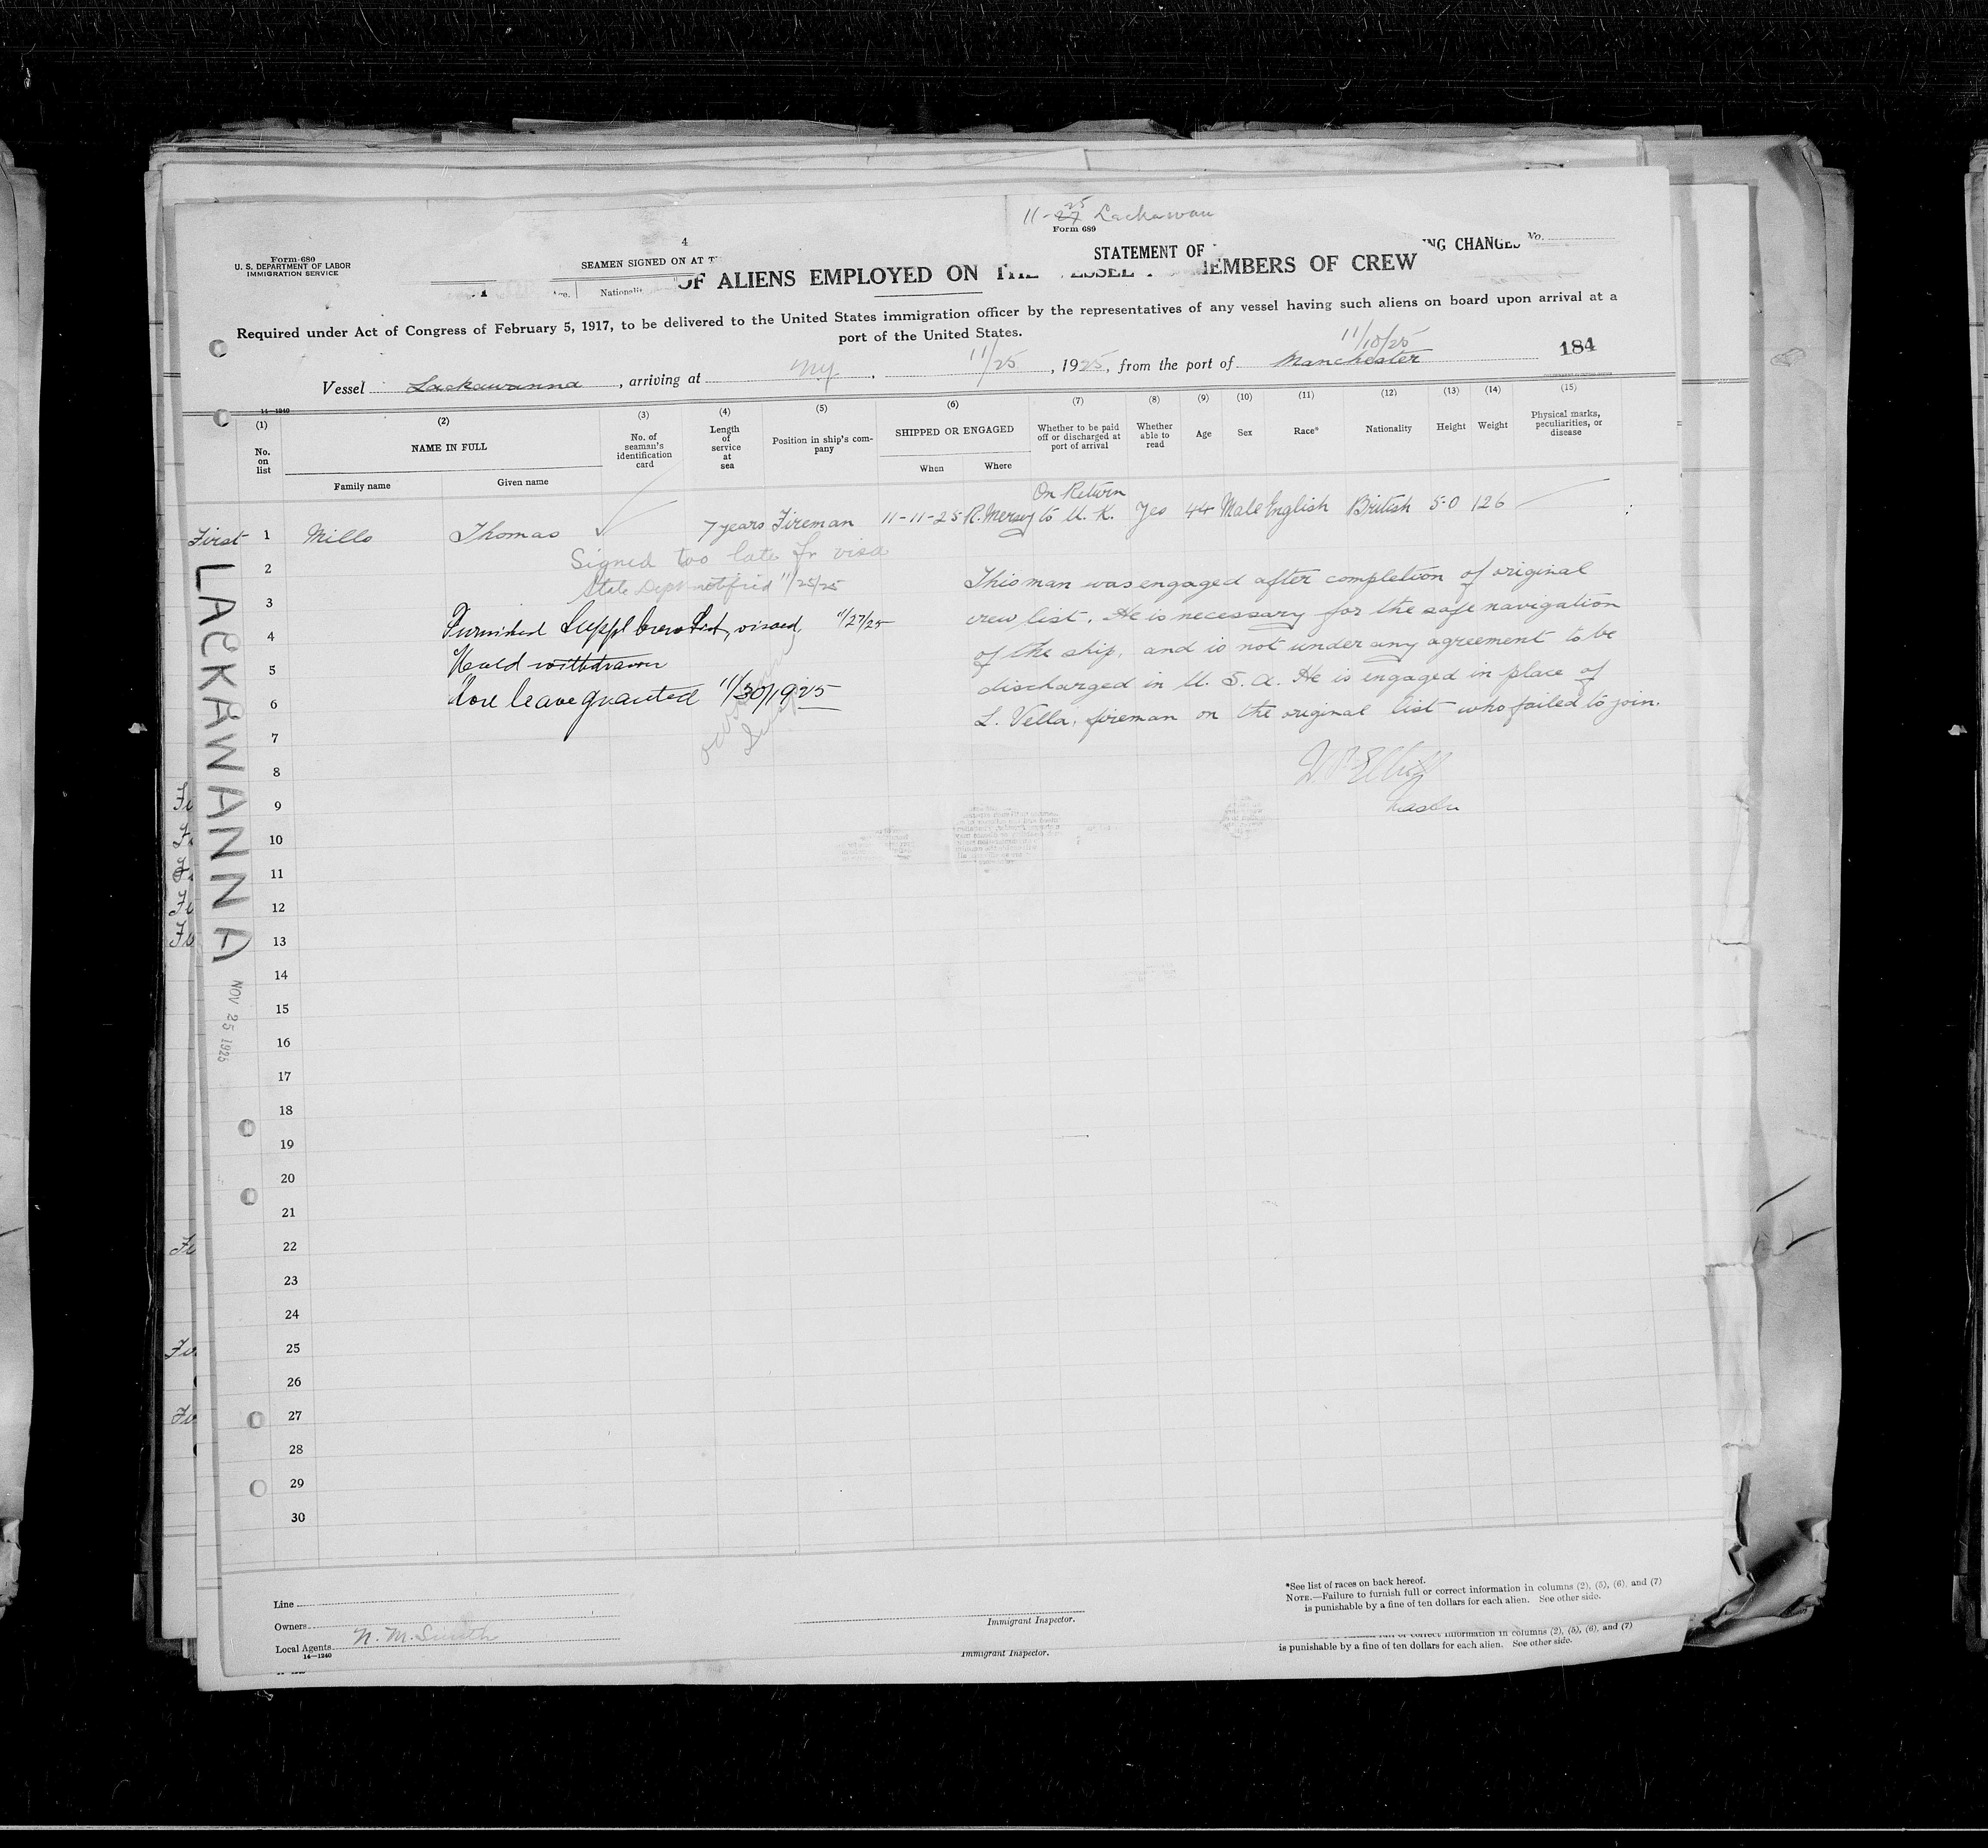 11-27 25 Lackawan
Form 689
Form 689
U. S. DEPARTMENT OF LABOR
IMMIGRATION SERVICE
4
SEAMEN SIGNED ON AT T
STATEMENT OF
NG CHANGES
No.
OF ALIENS EMPLOYED ON THE VESSEL MEMBERS OF CREW
Age. Nationali
Required under Act of Congress of February 5, 1917, to be delivered to the United States immigration officer by the representatives of any vessel having such aliens on board upon arrival at a
port of the United States.
Vessel Lackawanna, arriving at NY, 11/25, 1925, from the port of Manchester 11/10/25
184
14—1240
(1) (2) (3) (4) (5) (6) (7) (8) (9) (10) (11) (12) (13) (14) (15)
No. on list
NAME IN FULL
Family name
Given name
No. of seaman's identification card
Length of service at sea
Position in ship's company
SHIPPED OR ENGAGED
When
Where
Whether to be paid off or discharged at port of arrival
Whether able to read
Age
Sex
Race*
Nationality
Height
Weight
Physical marks, peculiarities, or disease
First 1 Mills Thomas 7 years Fireman 11-11-25 R. Mersey On Return to U. K. Yes 44 Male English British 5-0 126
2 Signed too late for visa
State Dept notified 11/25/25
3
Furnished Suppl Crew List, visaed, 11/27/25
4
5 withdrawn
leave granted 11/30/1925
6
This man was engaged after completion of original
crew list. He is necessary for the safe navigation
of the ship, and is not under any agreement to be
discharged in U. S. A. He is engaged in place of
L. Vella, fireman on the original list who failed to join.
Master
7
8
9
10
11
12
13
14
15
16
17
18
19
20
21
22
23
24
25
26
27
28
29
30
LACKAWANNA
NOV 25 1925
Line
Owners
Local Agents N. M. Smith
14—1240
Immigrant Inspector.
Immigrant Inspector.
*See list of races on back hereof.
NOTE.—Failure to furnish full or correct information in columns (2), (5), (6), and (7)
is punishable by a fine of ten dollars for each alien. See other side.
full or correct information in columns (2), (5), (6), and (7)
is punishable by a fine of ten dollars for each alien. See other side.